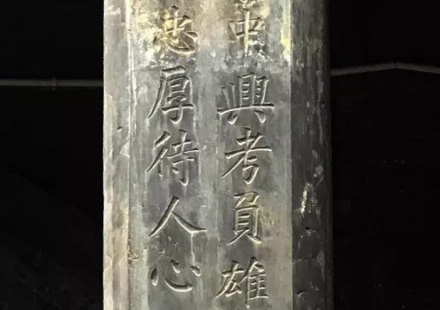 興考員雄
忠厚待人心